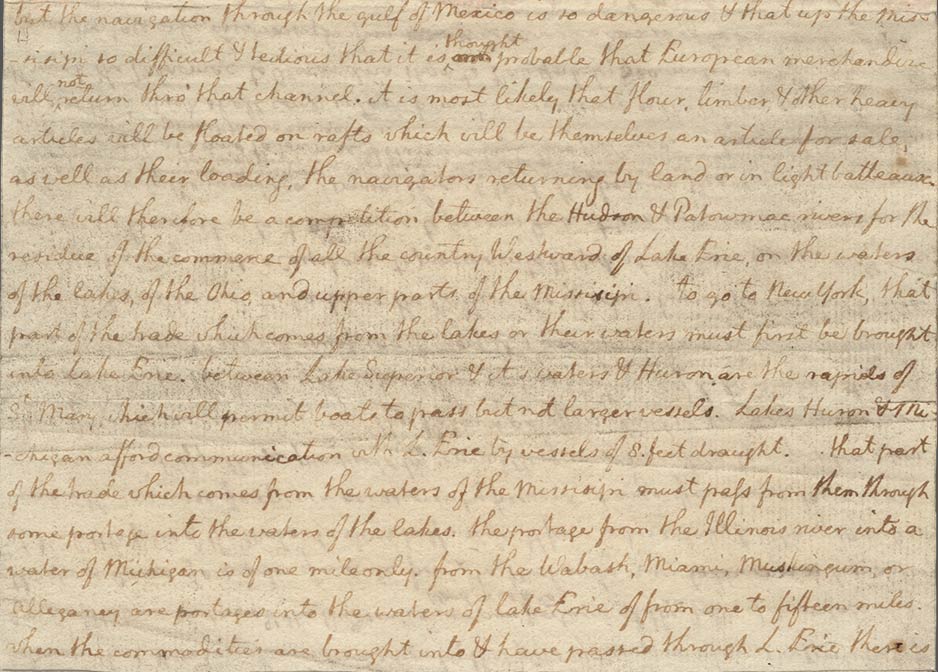 but the navigation through the gulf of Mexico is so dangerous & that up the Mis-
-sisipi so difficult & tedious that it is thought probable that European merchandize
will not return thro' that channel. it is most likely that flour, timber & other heavy
articles will be floated on rafts which will be themselves an article for sale,
as well as their loading, the navigators returning by land or in light batteaux.
there will therefore be a competition between the Hudson & Patowmac rivers for the
residue of the commerce of all the country Westward of Lake Erie, on the waters
of the lakes, of the Ohio, and upper parts of the Missisipi. to go to New York, that
part of the trade which comes from the lakes or their waters must first be brought
into Lake Erie. between Lake Superior & it's waters & Huron are the rapids of
St. Mary, which will permit boats to pass but not larger vessels. Lakes Huron & Mi-
-chigan afford communication with L. Erie by vessels of 8. feet draught. that part
of the trade which comes from the waters of the Missisipi must pass from them through
some portage into the waters of the lakes. the portage from the Illinois river into a
water of Michigan is of one mile only. from the Wabash, Miami, Muskingum, or
Alleganey are portages into the waters of lake Erie of from one to fifteen miles.
when the commodities are brought into & have passed through L. Erie there is